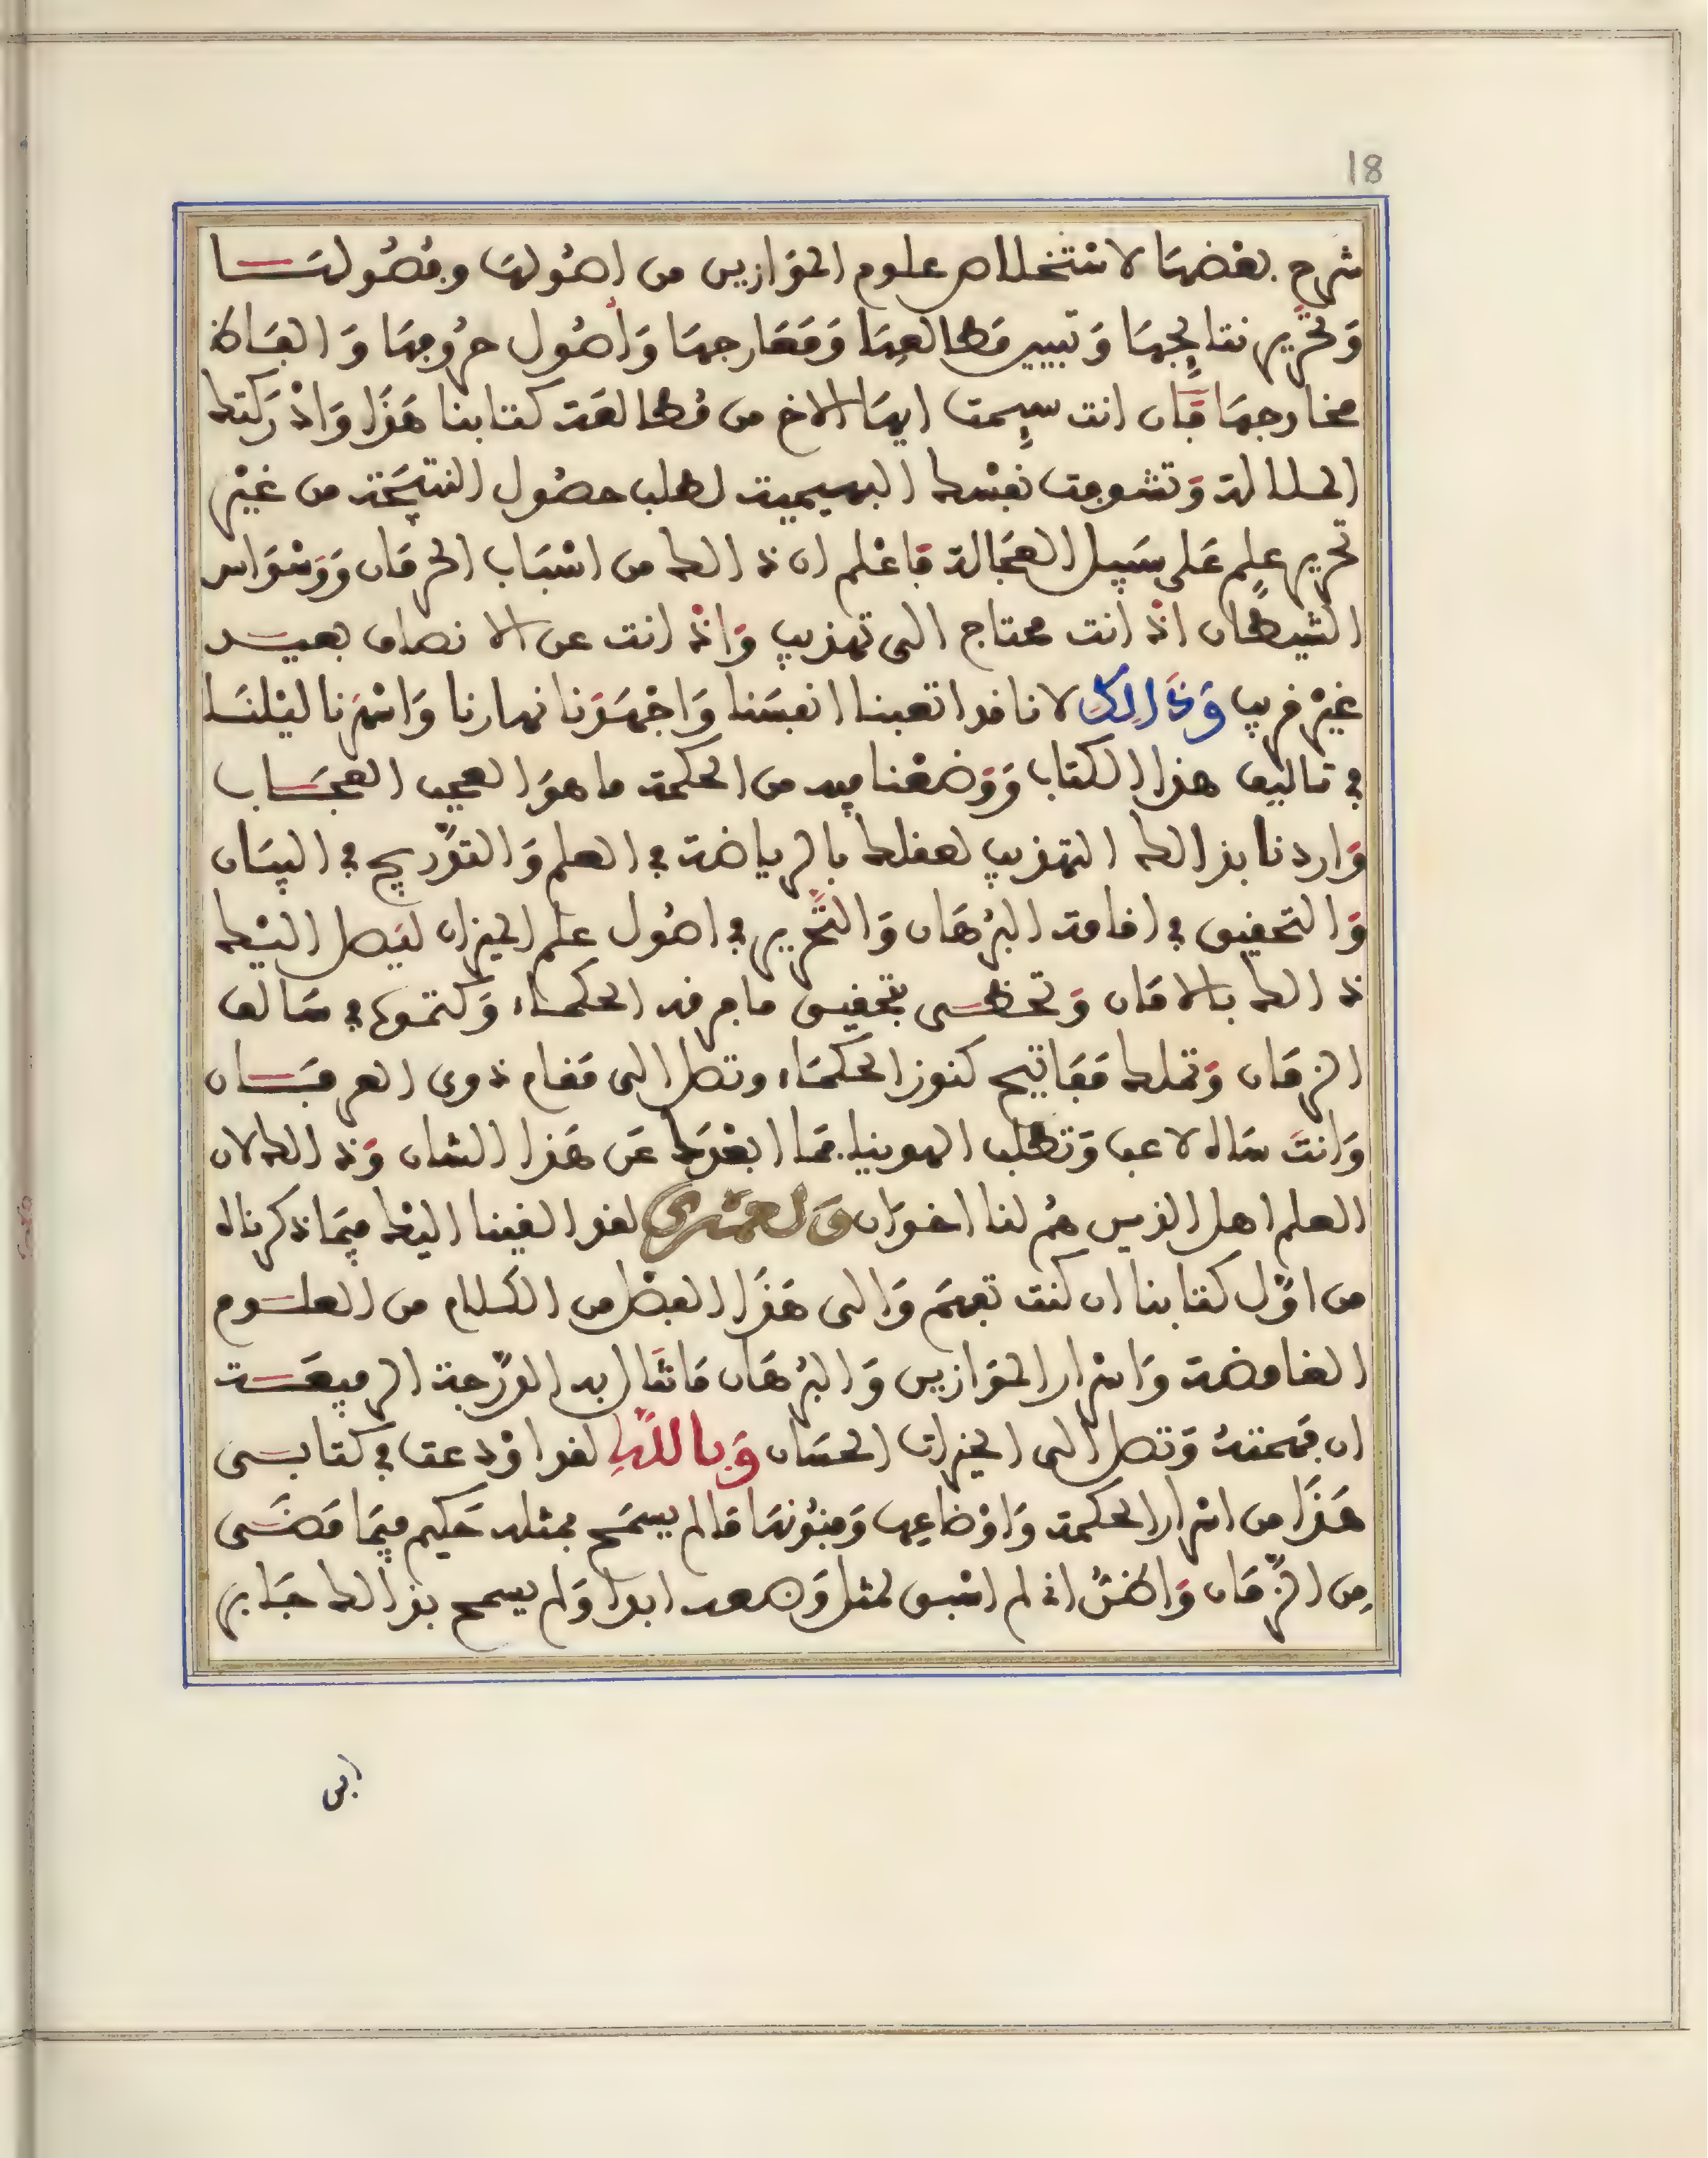 18
شرح بعضها لاستخلاص علوم الموازين من اصُولها وفصُولها
وَتحرير نتايجها وَتبيين مَطالعِها وَمَعَارجها وَأصُول حرُوفها وَالفاظ
مخارجها فان انت سيمت ايها الاخ من مُطالعة كتابنا هَذَا وَادْركتك
الملالة وَتشوفت نفسْك البهيمية لطلب حصُول النتيجَة من غيْر
تحرير علم عَلى سَبيل العجَالة فاعْلم ان ذالك من اسْبَاب الحرمَان وَوَسْوَاس
الشيطان اذ انت محتاج الى تهذيب وَاذ انت عن الانصاف بعيد
غيْر قريب وَذَالِكَ لانا قد اتعبنا انفسَنا وَاجْهَدَنا نهارنا وَاسْهَرنا ليْلنَا
في تاليف هذا الكتاب وَوَضعْنا فيه من الحكمة ما هوَ العجب العجَاب
وَاردنا بذالك التهذيب لعقلك بالرياضة في العلم وَالتدْريج في البيَان
وَالتحقيق في اقامة البرْهَان وَالتحْرير في اصُول علم الميزان ليَصل اليْك
ذالك بالامَان وَتحظى بتحقيق ما عرفه الحكمَاء وَكتموه في سَالف
الزمَان وَتملك مَفَاتيح كنوز الحكمَاء وتصل الى مَقام ذوى العرفَان
وَانتَ سَاه لاعب وَتطلب الهوينا فمَا ابْعَدك عَن هَذا الشان وَذالك لان
العلم اهل الذين هُم لنا اخوَان وَلَعمْرى لقد القينا اليْك فيمَا ذكرناه
من اوّل كتابنا ان كنت تفهَم وَالى هَذَا الفصْل من الكلام من العلوم
الغامضة وَاسْرار الموَازين وَالبرْهَان مَا تنَال به الدّرَجة الرفيعَة
ان فهمتهُ وَتصل الى الخيرات الحسَان وَبا للَّهِ لقد اوْدعت في كتابى
هَذَا من اسْرار الحكمة وَاوْضاعِها وَفنُونهَا مَا لم يسمَح بمثله حَكيم فيمَا مَضَى
مِن الزّمَان وَاظنّ انى لم اسْبق لمثل وَضعه ابدا وَلم يسمح بذالك جَابر
ابن